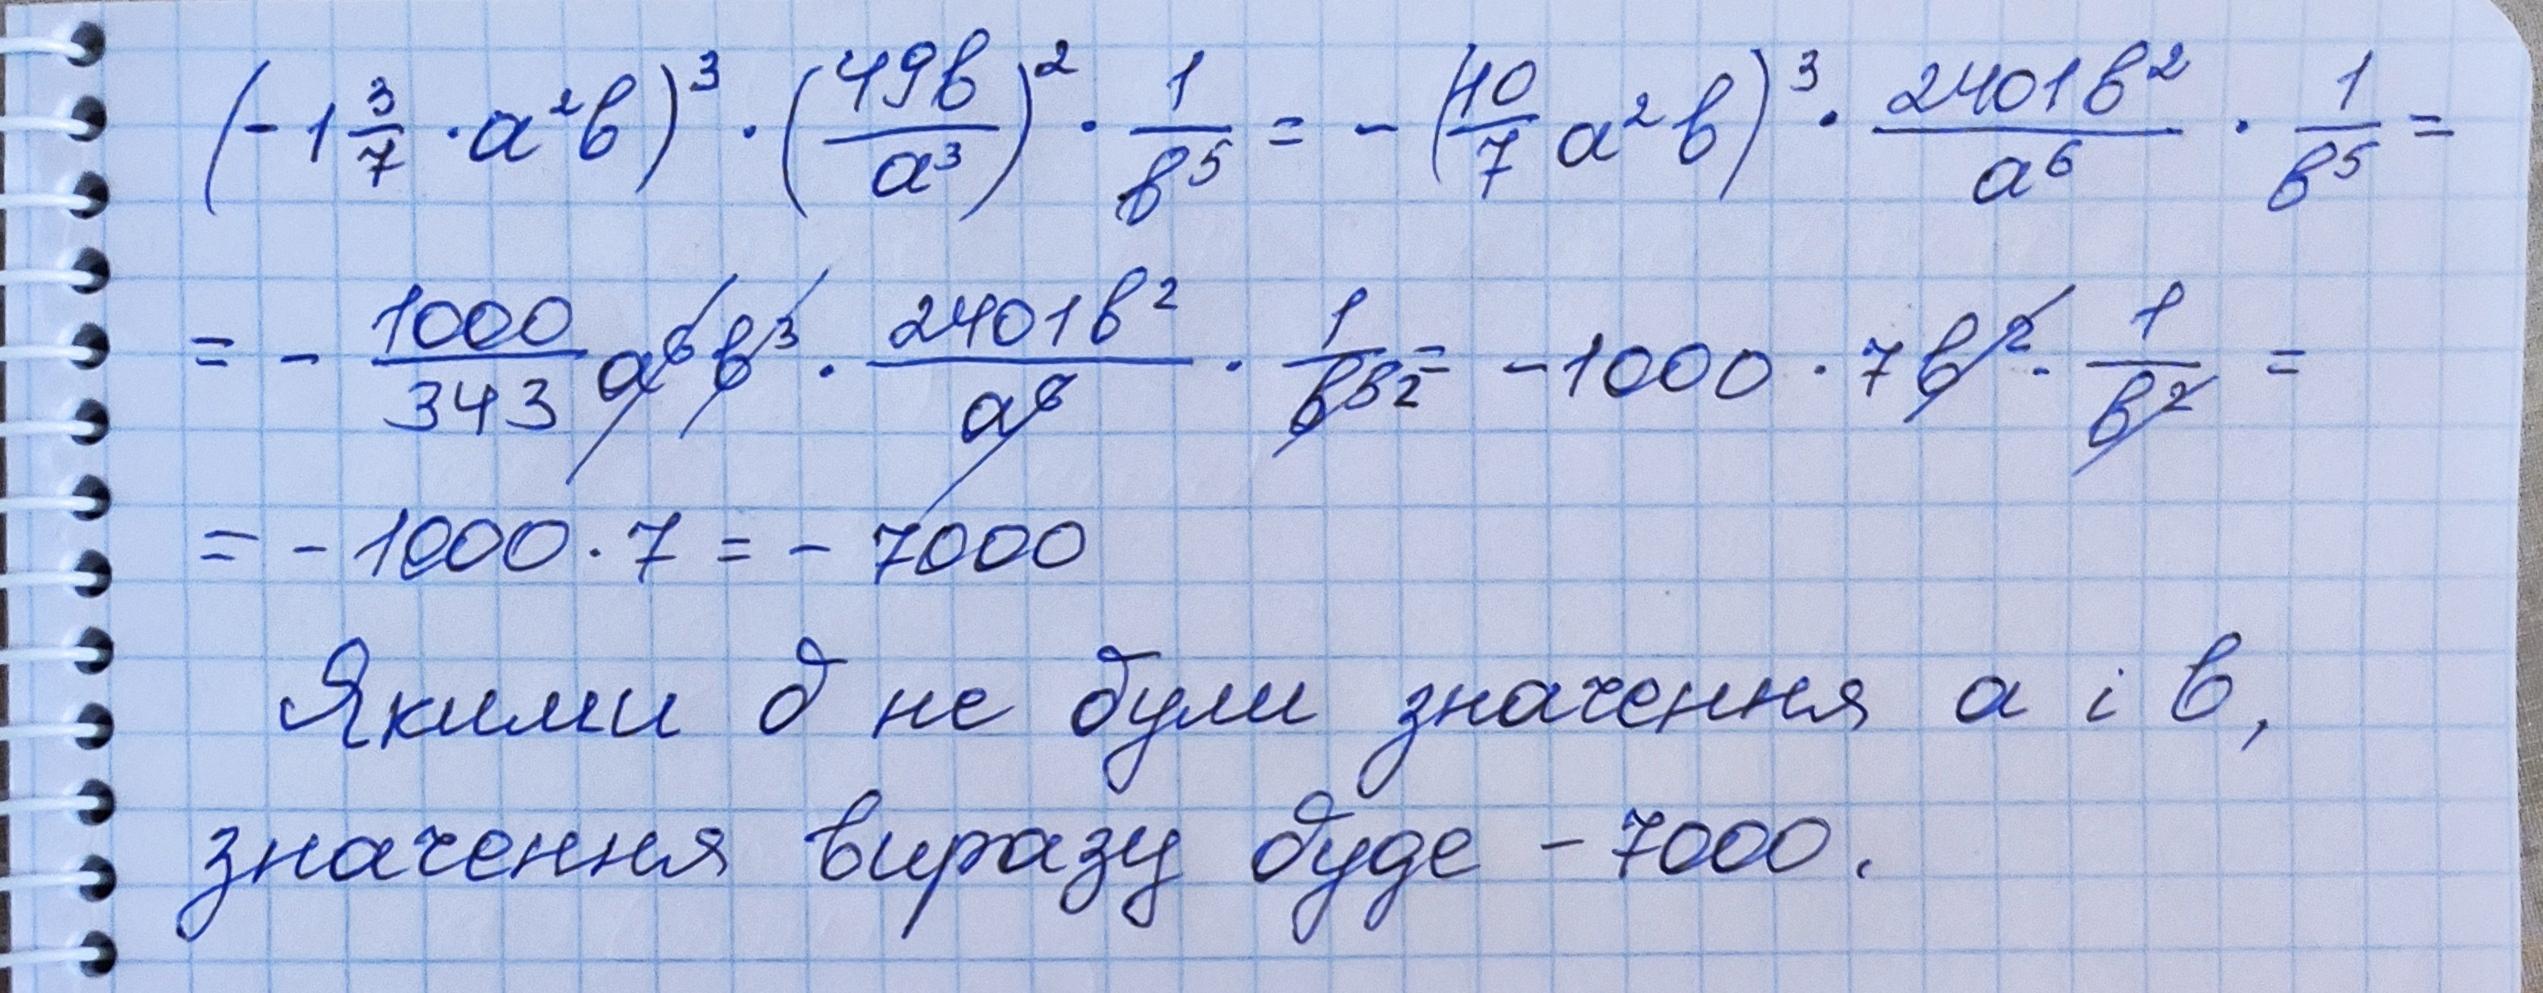 (-1 3/7 · a²b)³ · (49b/a³)² · 1/b⁵ = -(10/7 a²b)³ · 2401b²/a⁶ · 1/b⁵ =
= - 1000/343 a⁶b³ · 2401b²/a⁶ · 1/b⁵ ² = -1000 · 7b² · 1/b² =
= -1000 · 7 = -7000
Якими б не були значення a і b,
значення виразу буде -7000.